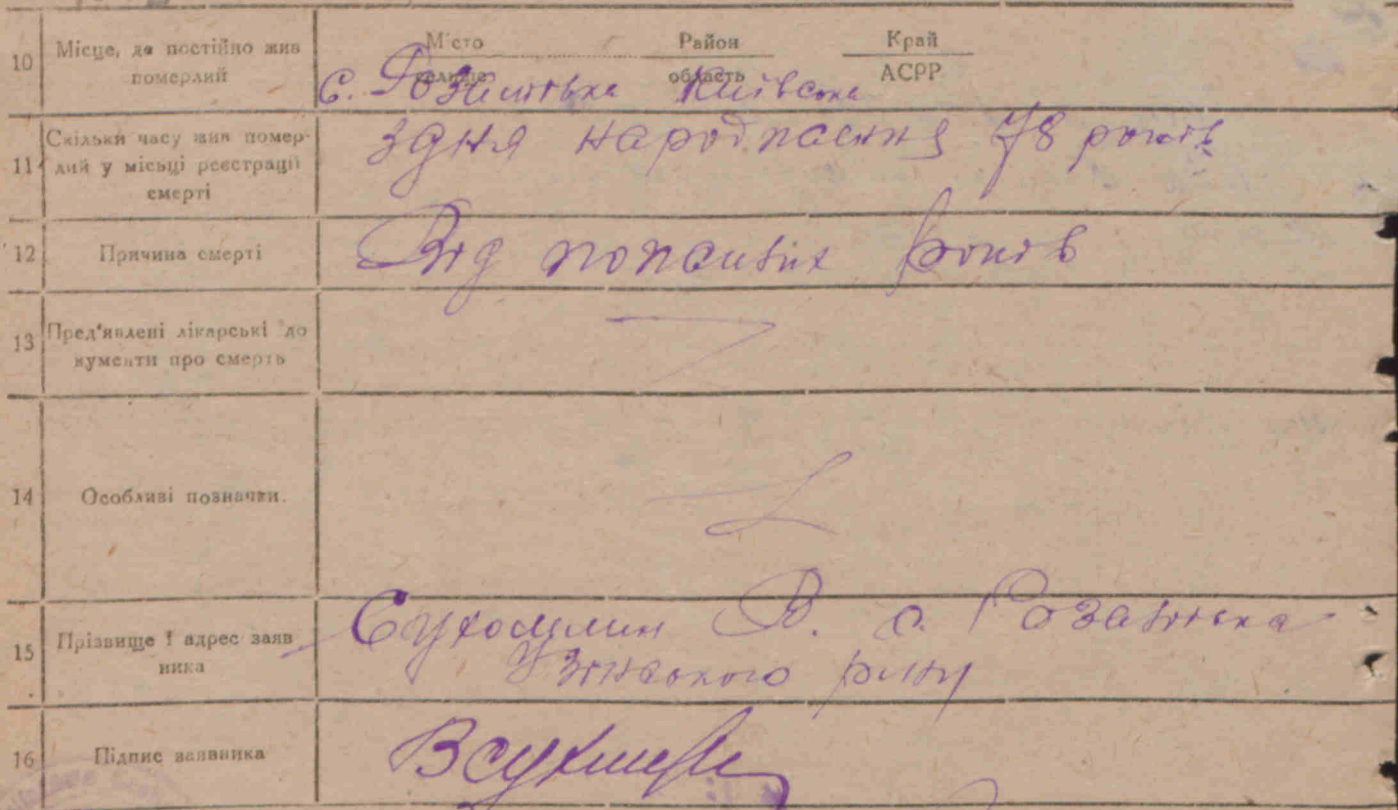 10 Місце, де постійно жив померлий
Місто селище Район область Край АСРР
с. Розаліївка Київська
11 Скільки часу жив помер-
лий у місьці реєстрації
смерті
з дня народження 78 років
12 Причина смерті
Від похилих років
13 Пред'явлені лікарські до
кументи про смерть
14 Особливі позначки.
15 Прізвище і адрес заяв
ника
Сухомлин В. с. Розаліївка
Узинського р-ну
16 Підпис заявника